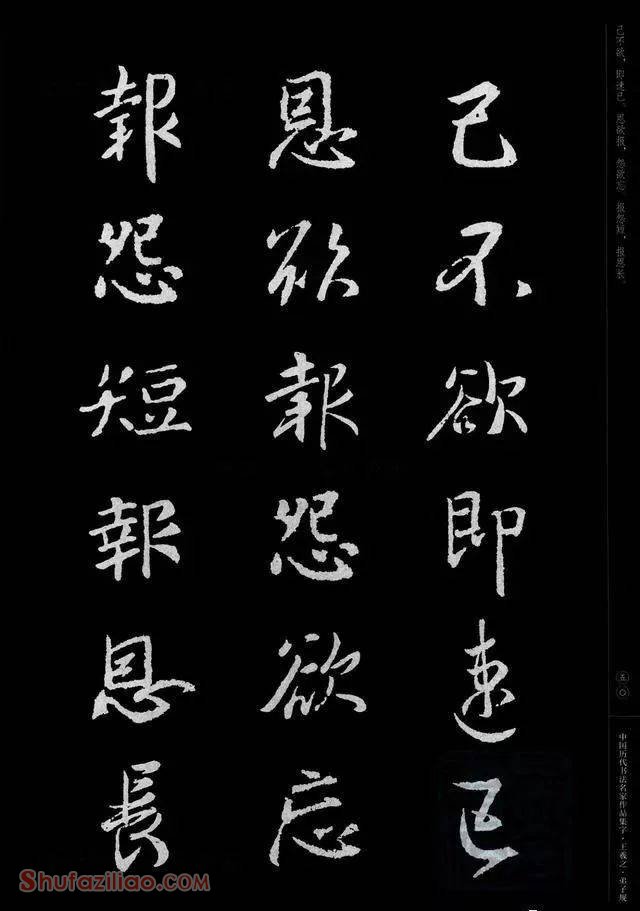 己不欲即速已
恩欲報怨欲忘
報怨短報恩長
己不欲，即速已。恩欲报，怨欲忘。报怨短，报恩长。
五〇
中国历代书法名家作品集字·王羲之·弟子规
Shufaziliao.com